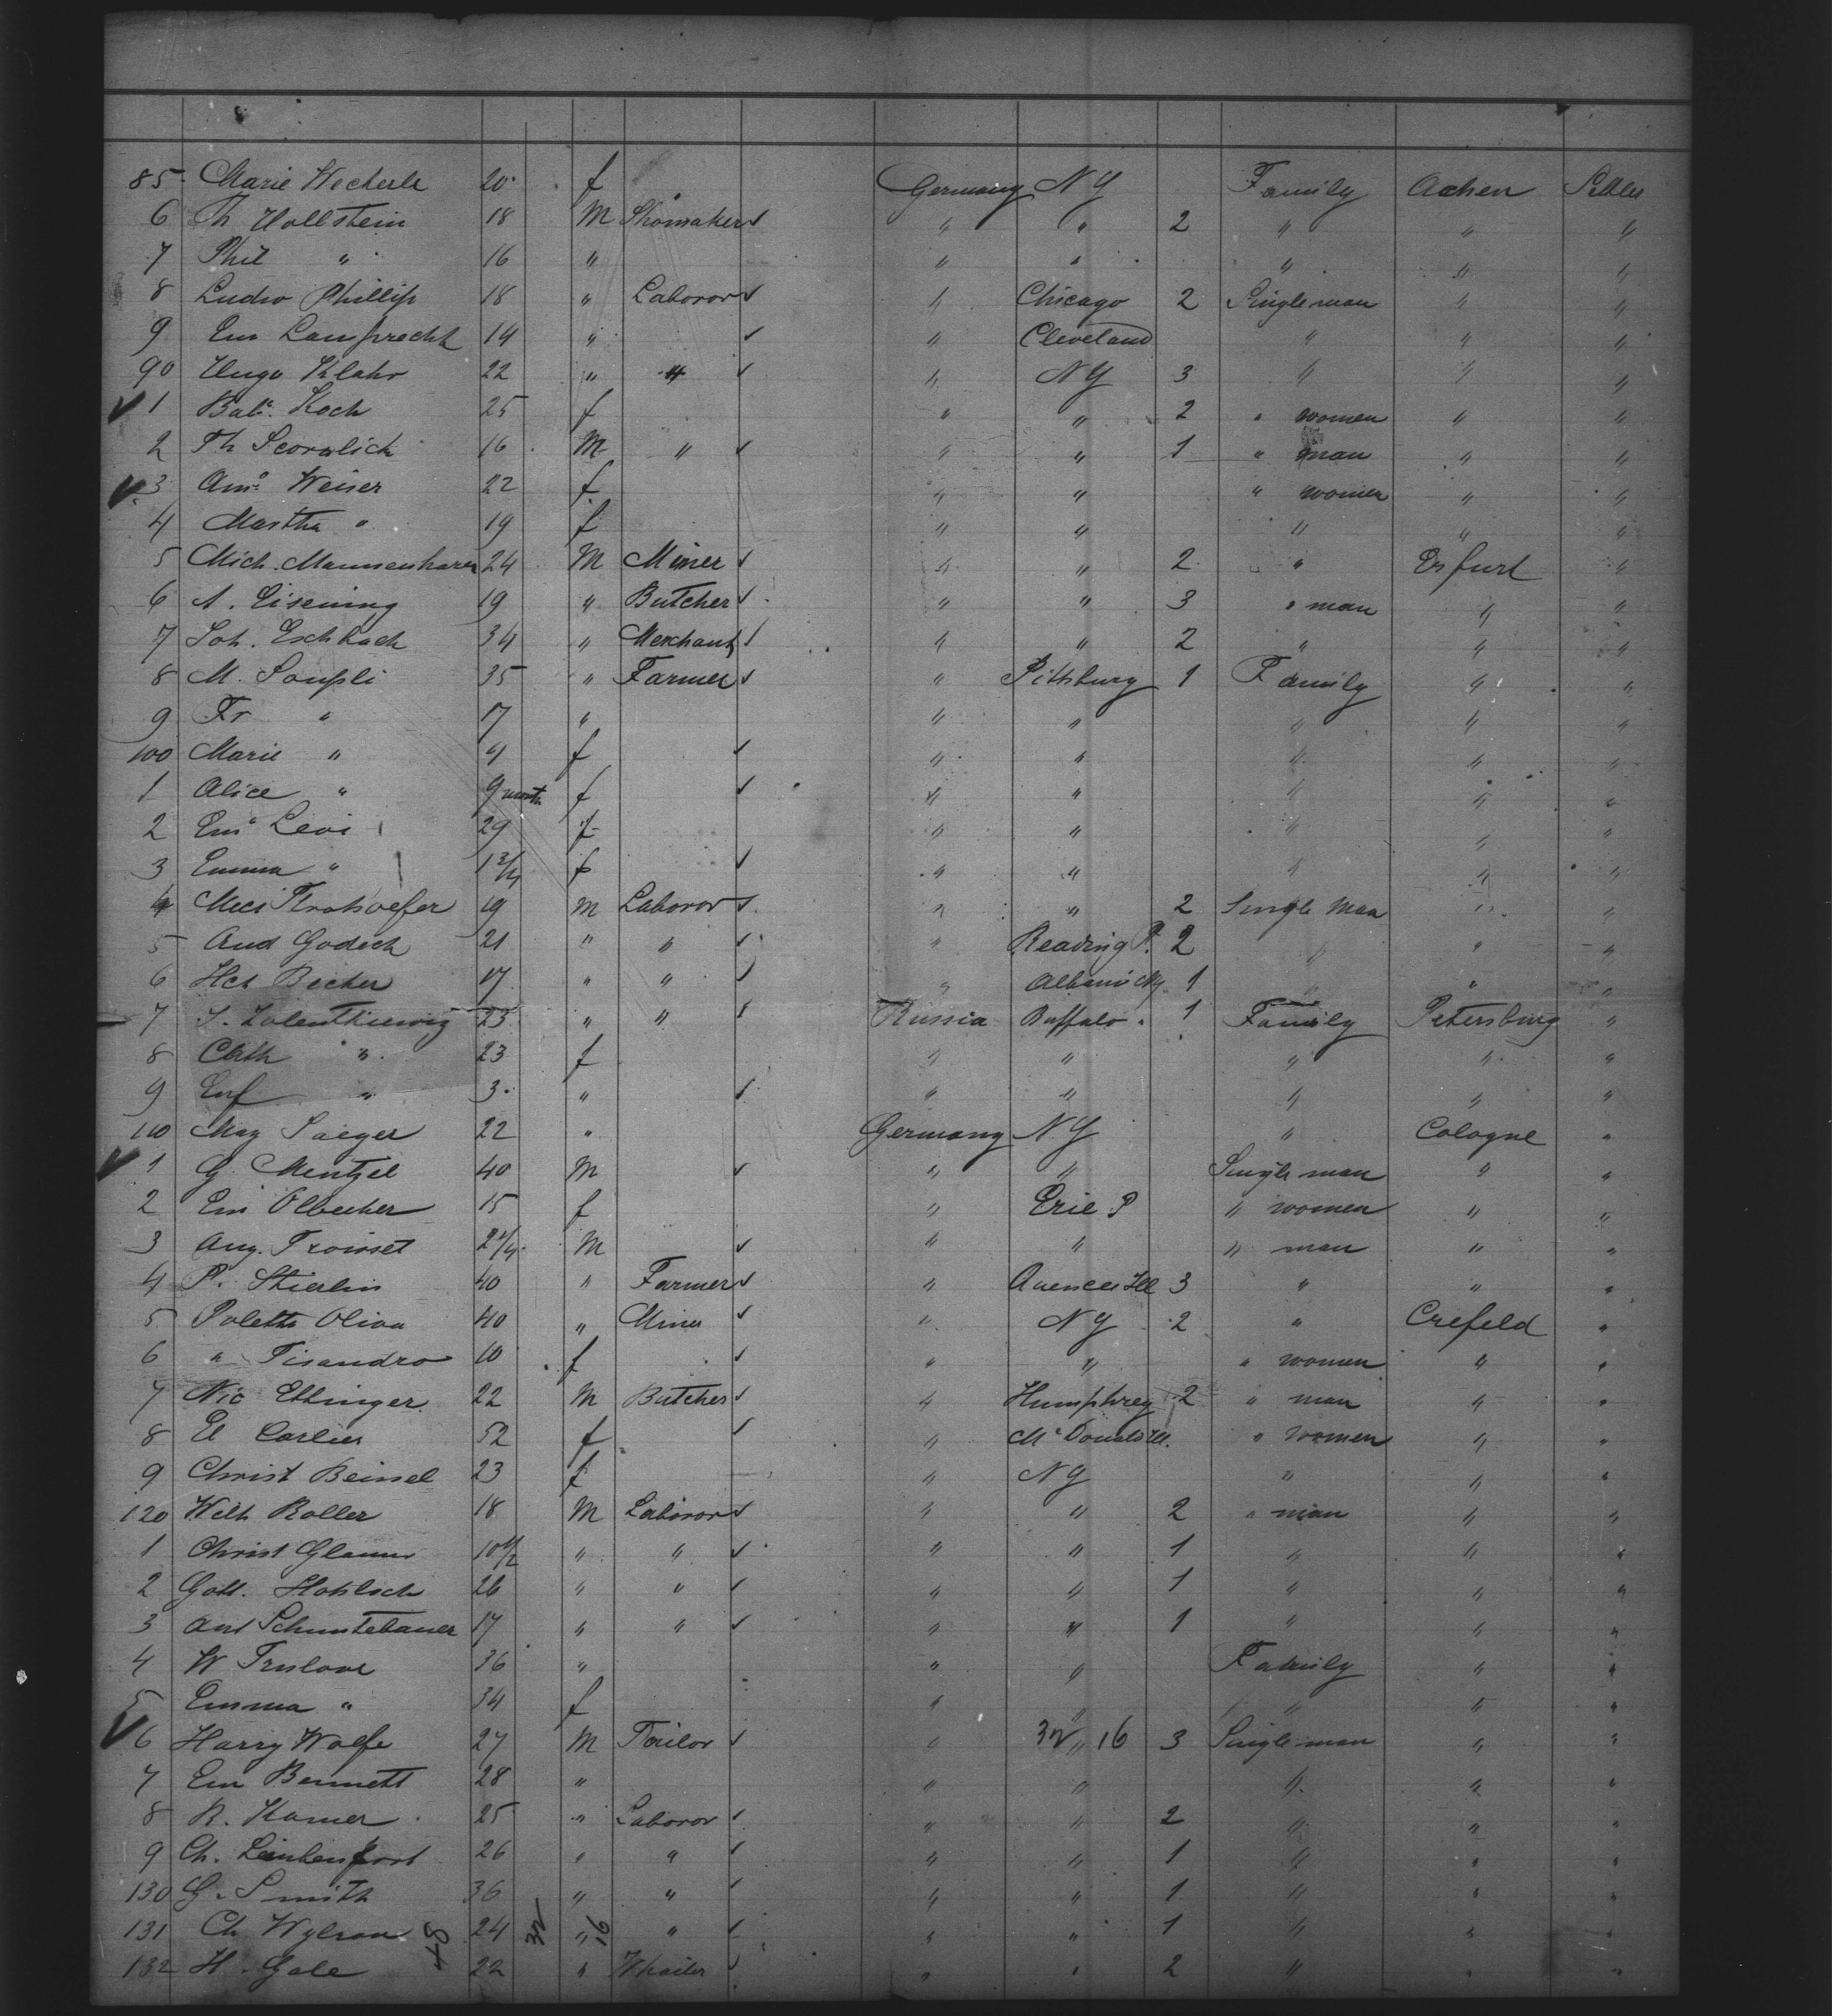 85 Marie Wecherle 20 f Germany NY Family Achen Settler
6 Th Hollstein 18 M Shomaker " " 2 " " "
7 Phil " 16 " " " " " "
8 Ludw Phillip 18 " Laboror " Chicago 2 Single man " "
9 Em Lamprecht 14 " " Cleveland " " "
90 Hugo Klahr 22 " " " NY 3 " " "
1 Bab. Koch 25 f " " 2 " women " "
2 Th 16 M " " " 1 " man " "
3 Ama Weiser 22 f " " " women " "
4 Martha " 19 f " " " " "
5 Mich. Mannenharen 24 M Miner " " 2 " Erfurt "
6 A. Eisening 19 " Butcher " " 3 " man " "
7 Joh. Eschbach 34 " Merchant " " 2 " " "
8 M. Soupli 35 " Farmer " Pittsburg 1 Family " "
9 Fr " 17 " " " " " "
100 Marie " 4 f " " " " "
1 Alice " 9 month f " " " " "
2 Em Levi 29 f " " " " "
3 Emma " 1 3/4 f " " " " "
4 19 M Laboror " " 2 Single Man " "
5 Aud Godech 21 " " " Reading P. 2 " " "
6 Hch Becher 17 " " " Albani Ny 1 " " "
7 23 " " Russia Buffalo 1 Family Petersburg "
8 Cath " 23 f " " " " "
9 " 3 " " " " " "
110 May Saeger 22 " Germany NY " Cologne "
1 G. Mentzel 40 M " " Single man " "
2 Em Olbecher 15 f " Erie P " women " "
3 Aug. Troisset M " " " man " "
4 P. Stierlin 40 " Farmer " Ill 3 " " "
5 Poletta Oliva 40 " Miner " NY 2 " Crefeld "
6 " Tisandro 10 f " " " women " "
7 Nic Ettinger 22 M Butcher " Humphrey 2 " man " "
8 El Carlier 52 f " McDonald Ill. " women " "
9 Christ Beinsel 23 f " NY " " "
120 Wilh Roller 18 M Laboror " " 2 " man " "
1 Christ " " " " 1 " " "
2 Gott. Hohlsch 26 " " " " 1 " " "
3 Ant Schuntebauer 17 " " " " 1 " " "
4 W Truslove 36 " " " Family " "
5 Emma " 34 f " " " " "
6 Harry Wolfe 27 M Tailor " 32 " 16 3 Single man " "
7 Em Bennett 28 " " " " " "
8 R. Kamer 25 " Laboror " " 2 " " "
9 Ch. 26 " " " " 1 " " "
130 G. Smith 36 " " " " 1 " " "
131 Ch Wylson 48 24 32 " 16 " " " 1 " " "
132 H. Gale 22 " " " 2 " " "